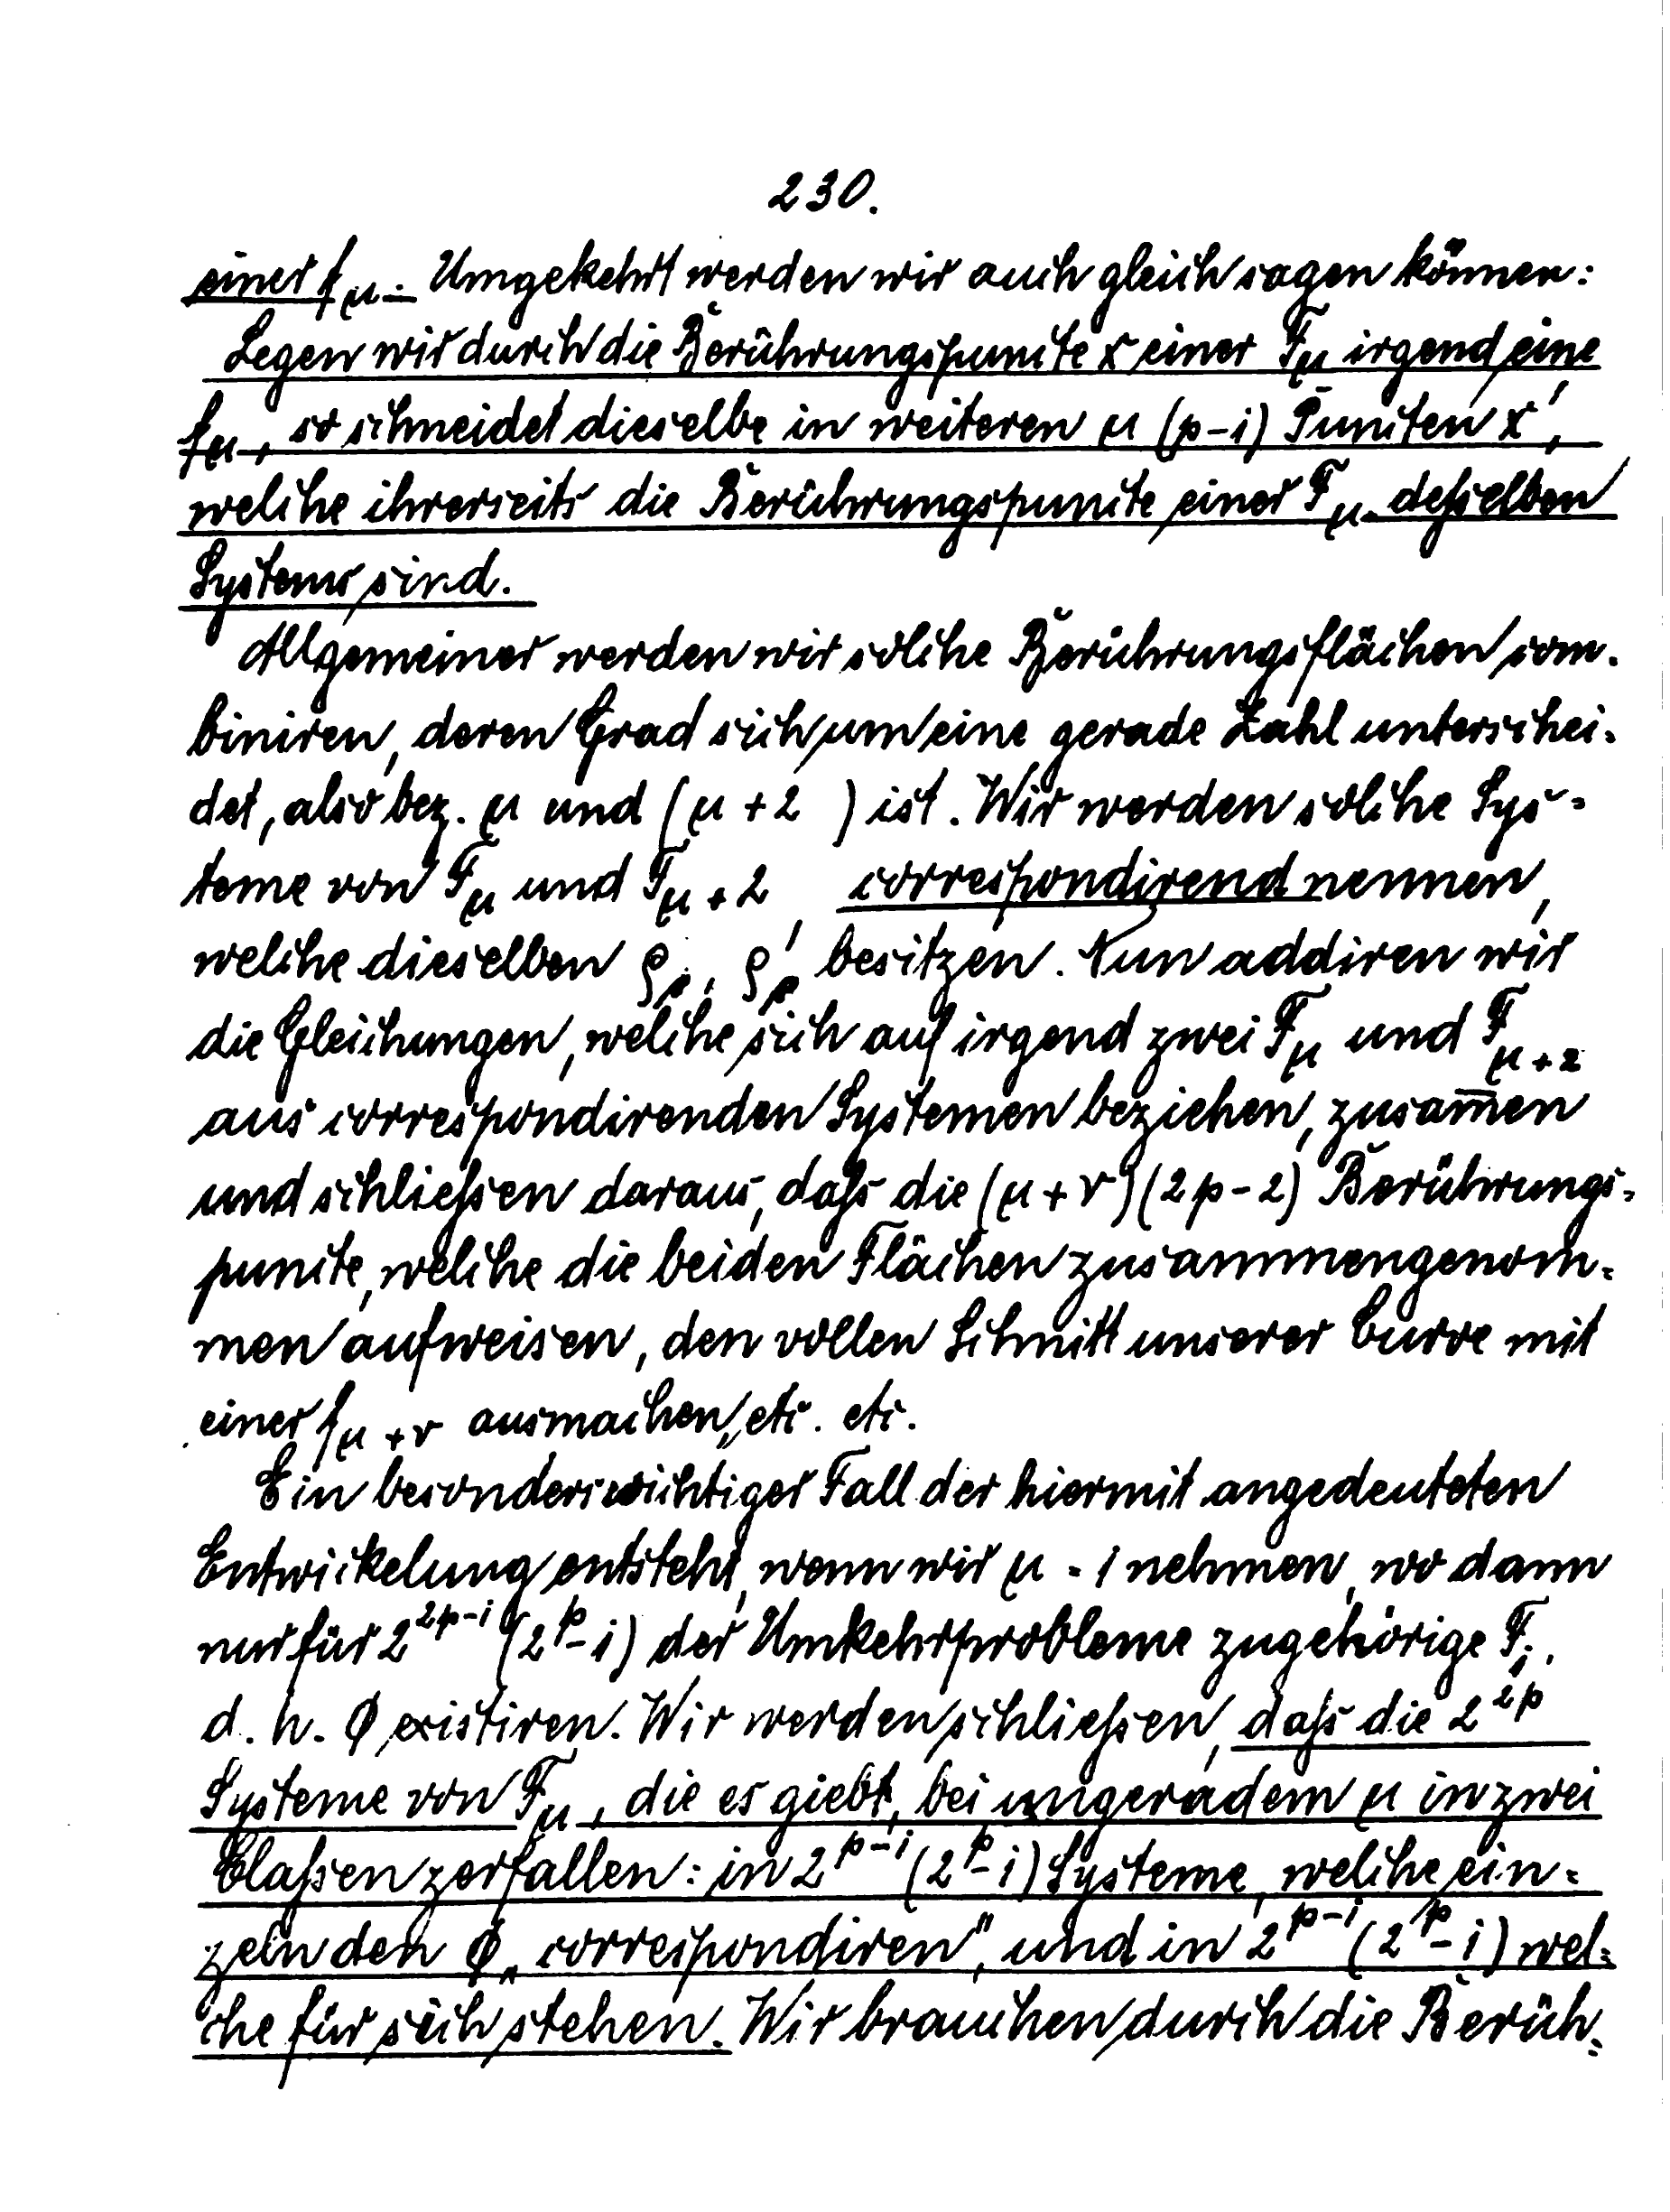 230.
einer f_μ. – Umgekehrt werden wir auch gleich sagen können:
Legen wir durch die Berührungspuncte x einer F_μ irgend eine
f_μ, so schneidet dieselbe in weiteren μ (p-1) Puncten x',
welche ihrerseits die Berührungspuncte einer F_μ desselben
Systems sind.
Allgemeiner werden wir solche Berührungsflächen com-
biniren, deren Grad sich um eine gerade Zahl unterschei-
det, also bez. μ und (μ + 2 ) ist. Wir werden solche Sys-
teme von F_μ und F_μ+2 correspondirend nennen,
welche dieselben ϱ, ϱ' besitzen. Nun addiren wir
die Gleichungen, welche sich auf irgend zwei F_μ und F_μ+2
aus correspondirenden Systemen beziehen, zusam̅en
und schließen daraus, daß die (μ + ν) (2p-2) Berührungs-
puncte, welche die beiden Flächen zusammengenom-
men aufweisen, den vollen Schnitt unserer Curve mit
einer f_μ+ν ausmachen, etc. etc.
Ein besonders wichtiger Fall der hiermit angedeuteten
Entwickelung entsteht, wenn wir μ = 1 nehmen, wo dann
nur für 2^{2p-1} (2^p-1) der Umkehrprobleme zugehörige F_1,
d. h. φ existiren. Wir werden schließen, daß die 2^{2p}
Systeme von F_μ, die es giebt, bei ungeradem μ in zwei
Claßen zerfallen: in 2^{p-1} (2^p-1) Systeme, welche ein-
zeln den φ „correspondiren", und in 2^{p-1} (2^p-1) wel-
che für sich stehen. Wir brauchen durch die Berüh-